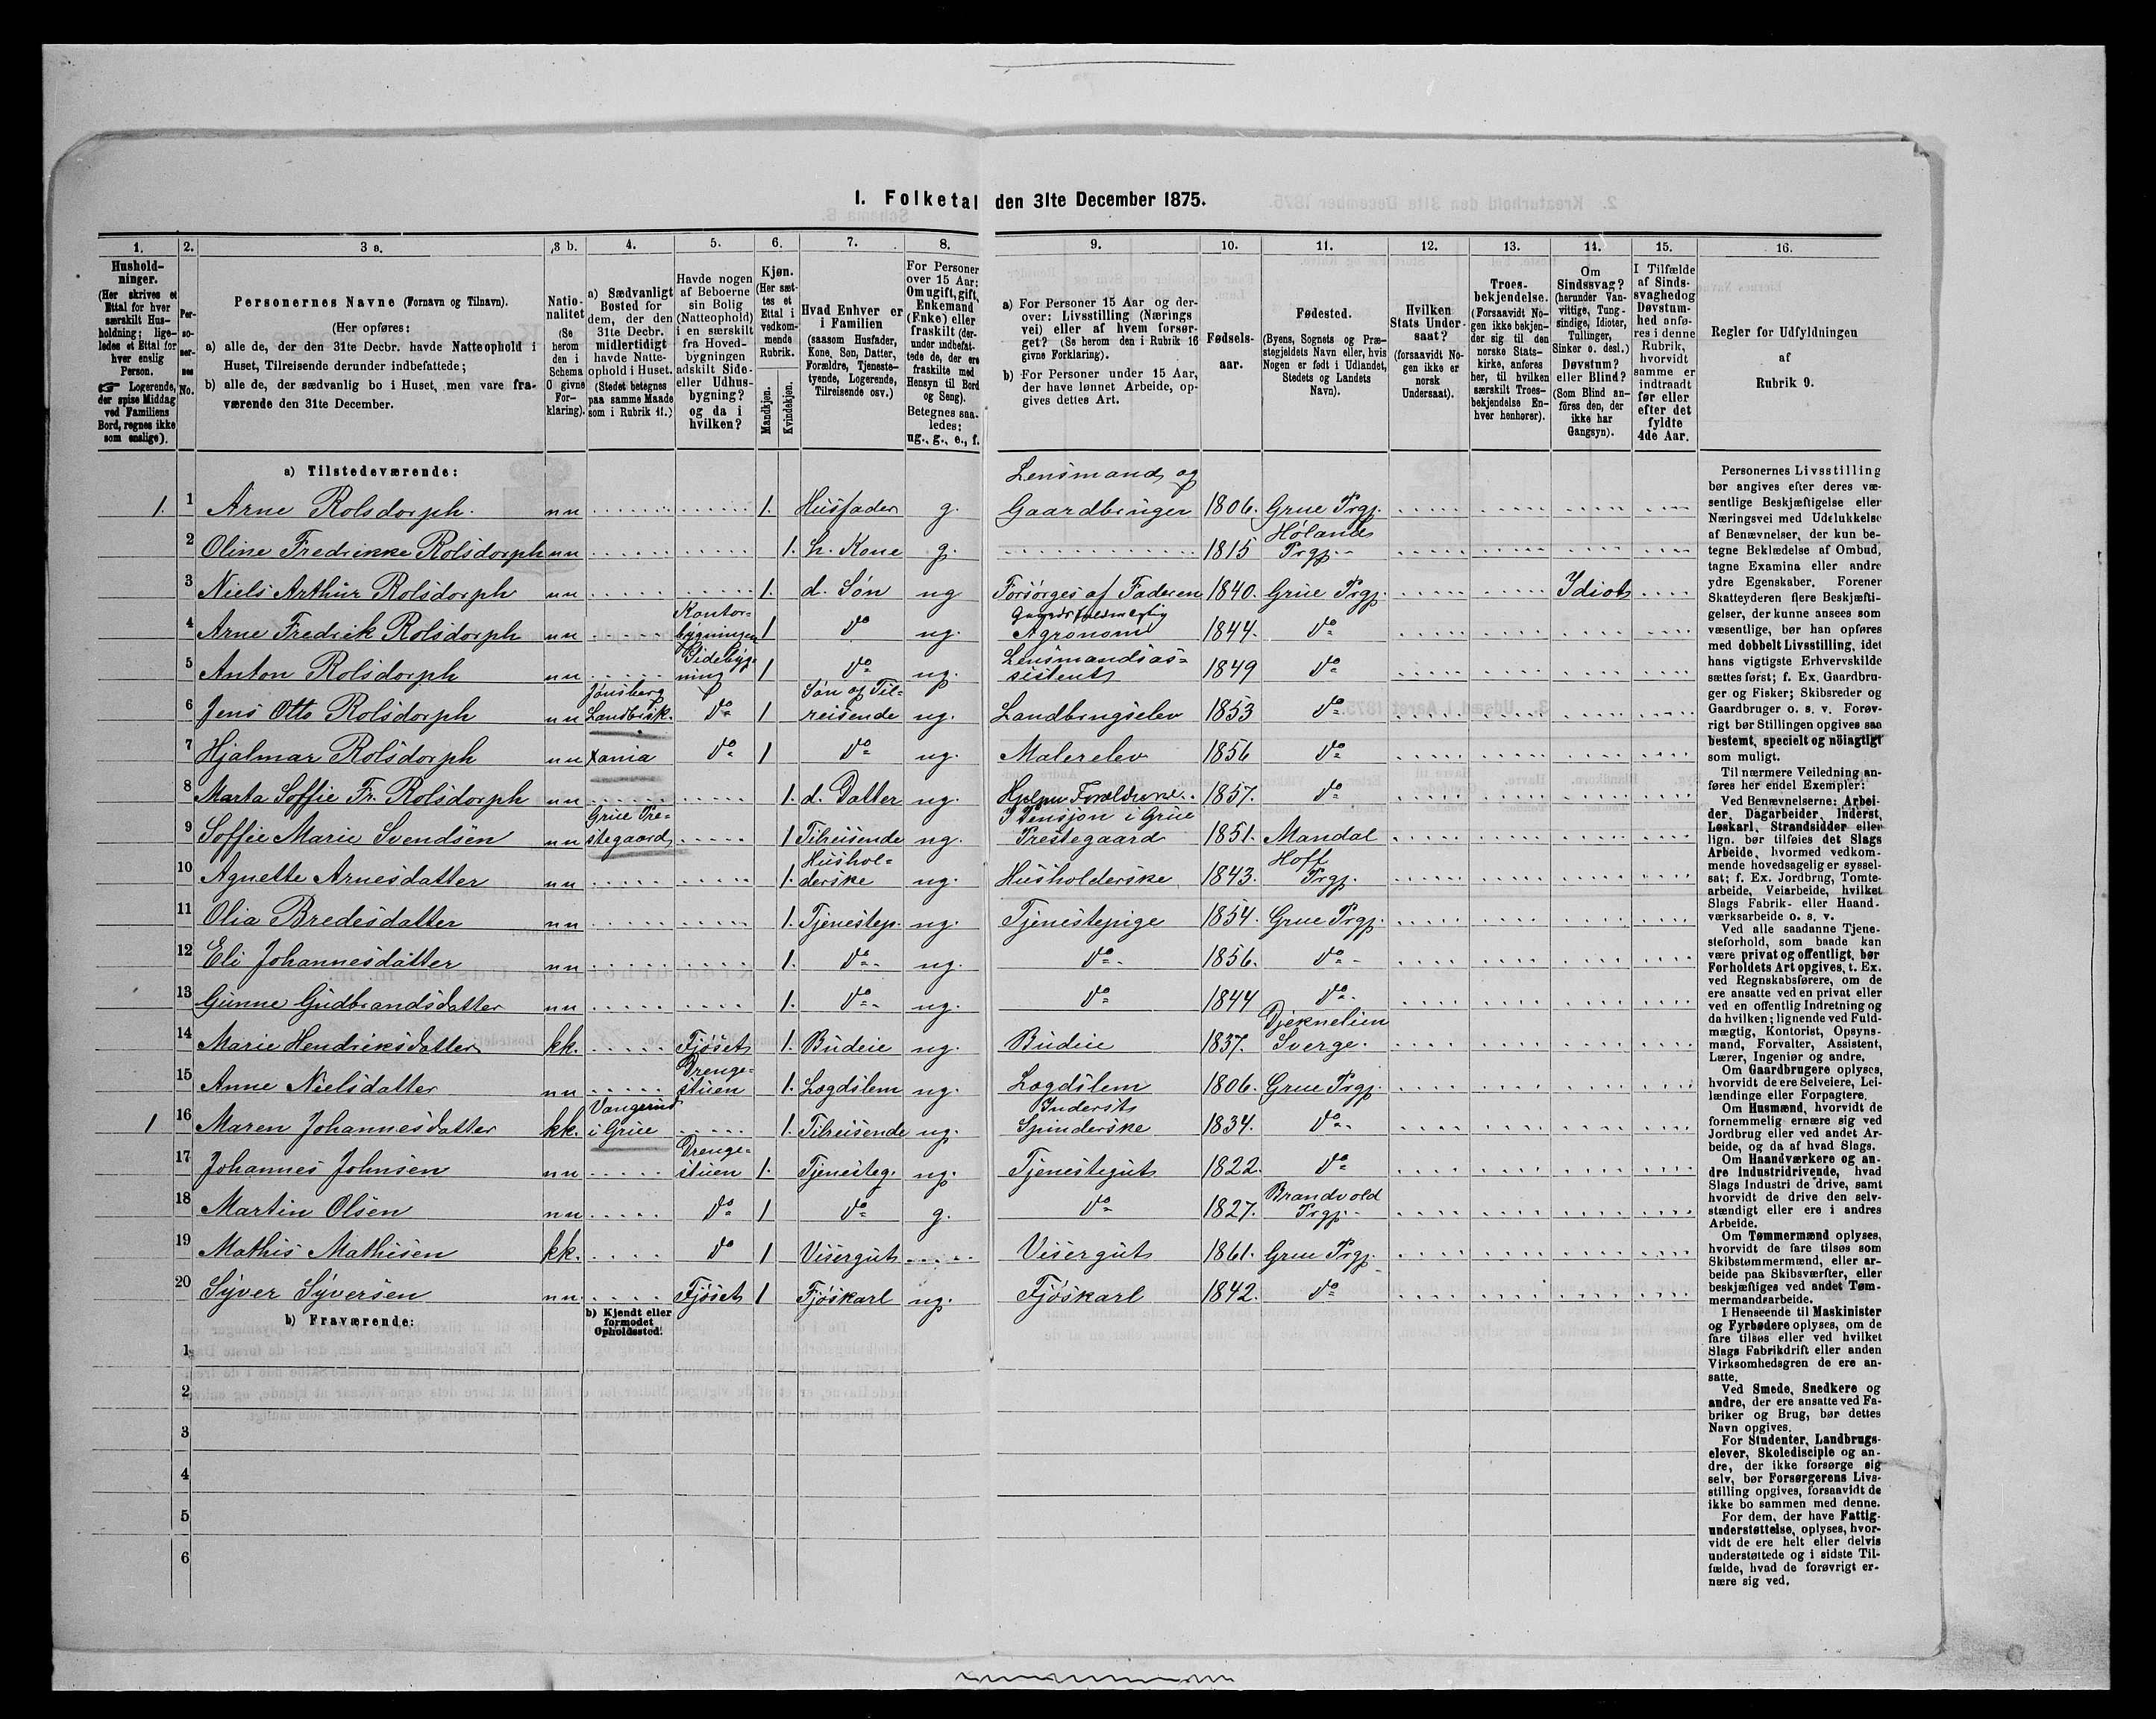 I. Folketal den 31te December 1875.
1. 2. 3 a. 3 b. 4. 5. 6. 7. 8. 9. 10. 11. 12. 13. 14. 15. 16.
Hushold-
ninger.
(Her skrives et
Ettal for hver
særskilt Hus-
holdning; lige-
ledes et Ettal for
hver enslig
Person.
☞ Logerende,
der spise Middag
ved Familiens
Bord, regnes ikke
som enslige).
Per-
so-
ner-
nes
No.
Personernes Navne (Fornavn og Tilnavn).
(Her opføres:
a) alle de, der den 31te Decbr. havde Natteophold i
Huset, Tilreisende derunder indbefattede;
b) alle de, der sædvanlig bo i Huset, men vare fra-
værende den 31te December.
Natio-
nalitet
(Se
herom
den i
Schema
O givne
For-
klaring).
a) Sædvanligt
Bosted for
dem, der den
31te Decbr.
midlertidigt
havde Natte-
ophold i Huset.
(Stedet betegnes
paa samme Maade
som i Rubrik 11.)
Havde nogen
af Beboerne
sin Bolig
(Natteophold)
i en særskilt
fra Hoved-
bygningen
adskilt Side-
eller Udhus-
bygning?
og da i
hvilken?
Kjøn.
(Her sæt-
tes et
Ettal i
vedkom-
mende
Rubrik.
Mandkjøn.
Kvindekjøn.
Hvad Enhver er
i Familien
(saasom Husfader,
Kone, Søn, Datter,
Forældre, Tjeneste-
tyende, Logerende,
Tilreisende osv.)
For Personer
over 15 Aar:
Om ugift, gift,
Enkemand
(Enke) eller
fraskilt (der-
under indbefat-
tede de, der ere
fraskilte med
Hensyn til Bord
og Seng).
Betegnes saa-
ledes:
ug., g., e., f.
a) For Personer 15 Aar og der-
over: Livsstilling (Nærings
vei) eller af hvem forsør-
get? (Se herom den i Rubrik 16
givne Forklaring).
b) For Personer under 15 Aar,
der have lønnet Arbeide, op-
gives dettes Art.
Fødsels-
aar.
Fødested.
(Byens, Sognets og Præ-
stegjeldets Navn eller, hvis
Nogen er født i Udlandet,
Stedets og Landets
Navn).
Hvilken
Stats Under-
saat?
(forsaavidt No-
gen ikke er
norsk
Undersaat).
Troes-
bekjendelse.
(Forsaavidt No-
gen ikke bekjen-
der sig til den
norske Stats-
kirke, anføres
her, til hvilken
særskilt Troes-
bekjendelse En-
hver henhører).
Om
Sindssvag?
(herunder Van-
vittige, Tung-
sindige, Idioter,
Tullinger,
Sinker o. desl.)
Døvstum?
eller Blind?
(Som Blind an-
föres den, der
ikke har
Gangsyn).
I Tilfælde
af Sinds-
svaghed og
Døvstum-
hed anfø-
res i denne
Rubrik,
hvorvidt
samme er
indtraadt
før eller
efter det
fyldte
4de Aar.
Regler for Udfyldningen
af
Rubrik 9.
a) Tilstedeværende:
1. 1 Arne Rolsdorph. nn 1. Husfader g. Lensmand og Gaardbruger 1806. Grue Prgj.
2 Oline Fredrikke Rolsdorph nn 1. h. Kone g. 1815 Hølands Prgj.
3 Niels Arthur Rolsdorph nn 1. d. Søn ug Forsørges af Faderen 1840. Grue Prgj. Idiot
4 Arne Fredrik Rolsdorph nn Kontor-bygningen 1 do ug. Agronom 1844. do
5 Anton Rolsdorph nn Sidebyg-ning 1 do ug. Lensmandsas-sistent 1849 do
6 Jens Otto Rolsdorph nn Jønsberg Landbrsk. do 1 Søn og Til-reisende ug. Landbrugselev 1853 do
7 Hjalmar Rolsdorph nn Xania do 1 do ug. Malerelev 1856 do
8 Marta Soffie Fr. Rolsdorph nn 1. d. Datter ug. Hjelper Forældrene 1857. do
9 Soffie Marie Svendsen nn Grue Pre-stegaard 1 Tilreisende ug. I Pensjon i Grue Prestegaard 1851. Mandal
10 Agnette Arnesdatter nn 1. Hushol-derske ug. Husholderske 1843. Hoff Prgj.
11 Olia Bredesdatter nn 1. Tjenestep. ug. Tjenestepige 1854. Grue Prgj.
12 Eli Johannesdatter nn 1. do ug. do 1856. do
13 Gunne Gudbrandsdatter nn 1. do ug. do 1844 do
14 Marie Hendriksdatter kk. Fjøset 1. Budeie ug. Budeie 1837. Sverge.
15 Anne Nielsdatter nn Drenge-stuen 1. Lægdslem ug. Lægdslem 1806. Grue Prgj.
1 16 Maren Johannesdatter kk. Vangerud i Grue 1. Tilreisende ug. Inderst Spinderske 1834. do
17 Johannes Johnsen nn Drenge-stuen 1. Tjenesteg. ug. Tjenestegut 1822. do
18 Martin Olsen nn do 1 do g. do 1827. Brandvold Prgj.
19 Mathis Mathisen kk. do 1 Visergut Visergut 1861. Grue Prgj.
20 Syver Syversen nn. Fjöset 1 Fjöskarl ug. Fjöskarl 1842. do
b) Fraværende:
b) Kjendt eller
formodet
Opholdssted.
1
2
3
4
5
6
Personernes Livsstilling
bør angives efter deres væ-
sentlige Beskjæftigelse eller
Næringsvei med Udelukkelse
af Benævnelser, der kun be-
tegne Beklædelse af Ombud,
tagne Examina eller andre
ydre Egenskaber. Forener
Skatteyderen flere Beskjæfti-
gelser, der kunne ansees som
væsentlige, bør han opføres
med dobbelt Livsstilling, idet
hans vigtigste Erhvervskilde
sættes først; f. Ex. Gaardbru-
ger og Fisker; Skibsreder og
Gaardbruger o. s. v. Forøv-
rigt bør Stillingen opgives saa
bestemt, specielt og nöiagtigt
som muligt.
Til nærmere Veiledning an-
føres her endel Exempler:
Ved Benævnelserne: Arbei-
der, Dagarbeider, Inderst,
Løskarl, Strandsidder eller
lign. bør tilføies det Slags
Arbeide, hvormed vedkom-
mende hovedsagelig er syssel-
sat; f. Ex. Jordbrug, Tomte-
arbeide, Veiarbeide, hvilket
Slags Fabrik- eller Haand-
værksarbeide o. s. v.
Ved alle saadanne Tjene-
steforhold, som baade kan
være privat og offentligt, bør
Forholdets Art opgives, t. Ex.
ved Regnskabsførere, om de
ere ansatte ved en privat eller
ved en offentlig Indretning og
da hvilken; lignende ved Fuld-
mægtig, Kontorist, Opsyns-
mand, Forvalter, Assistent,
Lærer, Ingeniør og andre.
Om Gaardbrugere oplyses,
hvorvidt de ere Selveiere, Lei-
lændinge eller Forpagtere.
Om Husmænd, hvorvidt de
fornemmelig ernære sig ved
Jordbrug eller ved andet Ar-
beide, og da af hvad Slags.
Om Haandværkere og an-
dre Industridrivende, hvad
Slags Industri de drive, samt
hvorvidt de drive den selv-
stændigt eller ere i andres
Arbeide.
Om Tømmermænd oplyses,
hvorvidt de fare tilsøs som
Skibstømmermænd, eller ar-
beide paa Skibsværfter, eller
beskjæftiges ved andet Tøm-
mermandsarbeide.
I Henseende til Maskinister
og Fyrbødere oplyses, om de
fare tilsøs eller ved hvilket
Slags Fabrikdrift eller anden
Virksomhedsgren de ere an-
satte.
Ved Smede, Snedkere og
andre, der ere ansatte ved Fa-
briker og Brug, bør dettes
Navn opgives.
For Studenter, Landbrugs-
elever, Skoledisciple og an-
dre, der ikke forsørge sig
selv, bør Forsørgerens Livs-
stilling opgives, forsaavidt de
ikke bo sammen med denne.
For dem, der have Fattig-
understøttelse, oplyses, hvor-
vidt de ere helt eller delvis
understøttede og i sidste Til-
fælde, hvad de forøvrigt er-
nære sig ved.